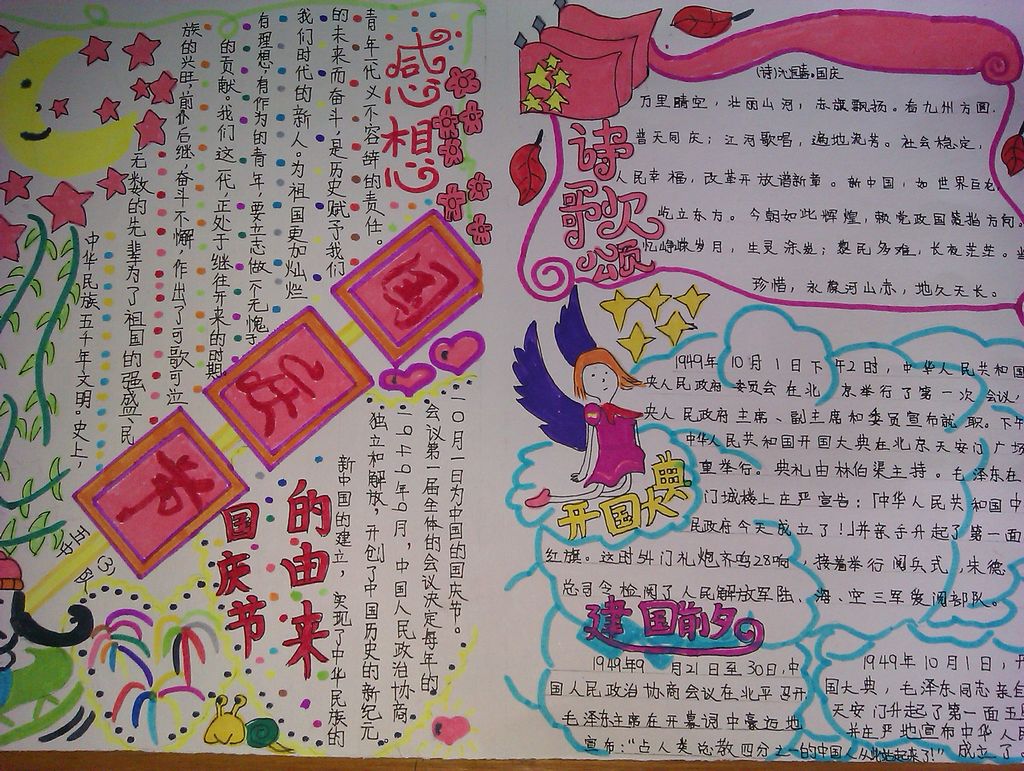 感想
中华民族五千年文明。史上,
无数的先辈为了祖国的强盛、民
族的兴旺,前仆后继,奋斗不懈,作出了可歌可泣
的贡献。我们这一代,正处于继往开来的时期。
有理想,有作为的青年,要立志做一个无愧于
我们时代的新人。为祖国更加灿烂
的未来而奋斗,是历史赋予我们
青年一代义不容辞的责任。
国
庆
节
五中队
(3)
国庆节
的由来
新中国的建立,实现了中华民族的
独立和解放,开创了中国历史的新纪元。
一九四九年9月,中国人民政治协商
会议第一届全体的会议决定每年的
一〇月一日为中国的国庆节。
诗歌颂
(诗)沁园春。国庆
万里晴空,壮丽山河,赤旗飘扬。看九州方圆,
普天同庆;江河歌唱,遍地流芳。社会稳定,
人民幸福,改革开放谱新章。新中国,如世界巨
屹立东方。今朝如此辉煌,赖党政国策指方向。
忆峥嵘岁月,生灵涂炭;黎民多难,长夜茫茫。
珍惜,永葆河山赤,地久天长。
开国大典
1949年10月1日下午2时,中华人民共和国
央人民政府委员会在北京举行了第一次会议,
央人民政府主席、副主席和委员宣布就职。下午
中华人民共和国开国大典在北京天安门广场
重举行。典礼由林伯渠主持。毛泽东在
门城楼上庄严宣告:「中华人民共和国中
民政府今天成立了!」并亲手升起了第一面
红旗。这时54门礼炮齐鸣28响,接着举行阅兵式,朱德
总司令检阅了人民解放军陆、海、空三军受阅部队。
建国前夕
1949年9月21日至30日,中
国人民政治协商会议在北平召开
毛泽东主席在开幕词中豪迈地
宣布:“占人类总数四分之一的中国人从此站起来了!”
1949年10月1日,开
国大典,毛泽东同志亲自
天安门升起了第一面五星
并庄严地宣布中华人民
成立了